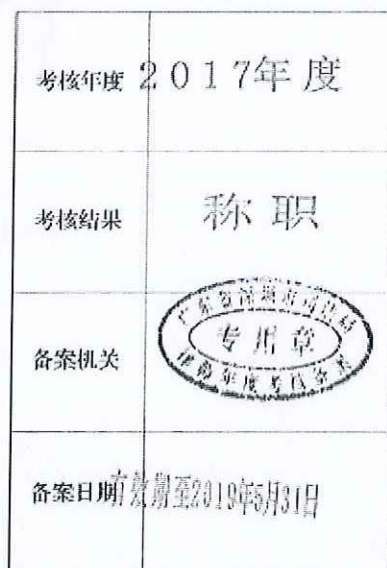 考核年度 2017年度
考核结果 称职
广东省深圳市司法局
专用章
律师年度考核备案
备案机关
备案日期 有效期至2019年5月31日